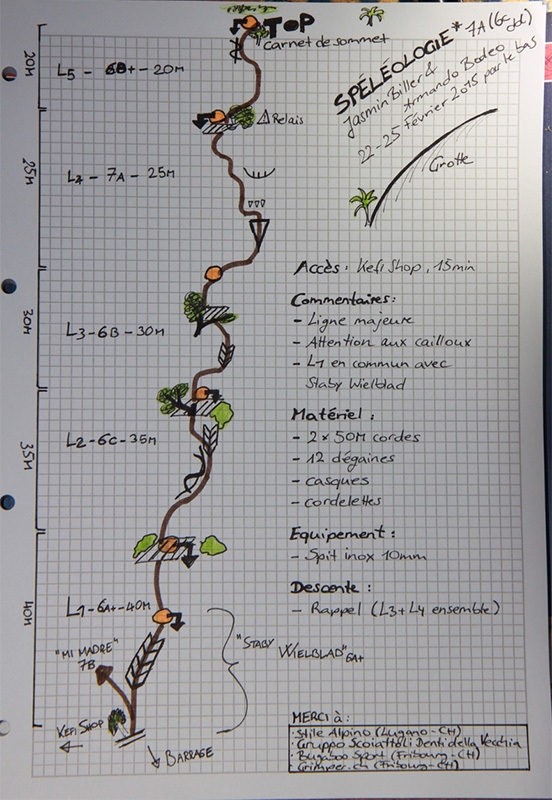 TOP
Carnet de sommet
SPÉLÉOLOGIE* 7A (6c obl)
Jasmin Biller &
Armando Bodeo
22-25 Février 2015 par le bas
Grotte
20M
L5 - 6B+ - 20M
Relais
25M
L4 - 7A - 25M
30M
L3-6B-30M
35M
L2-6C-35M
40M
L1-6A+-40M
"MI MADRE"
7B
"STABY WIELBLAD" 6A+
KEFI SHOP
BARRAGE
Accès: Kefi Shop, 15min
Commentaires:
- Ligne majeure
- Attention aux cailloux
- L1 en commun avec
Staby Wielblad
Matériel:
- 2 x 50M cordes
- 12 dégaines
- casques
- cordelettes
Equipement:
- Spit inox 10mm
Descente:
- Rappel (L3+L4 ensemble)
MERCI à:
·Stile Alpino (Lugano-CH)
·Gruppo Scoiattoli Denti della Vecchia
·Bugaboo Sport (Fribourg-CH)
·Grimper.ch (Fribourg-CH)